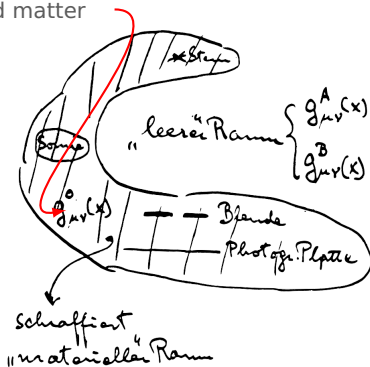 d matter
*Stern
"leerer" Raum
g^A_μν(x)
g^B_μν(x)
Sonne
g^0_μν(x)
Blende
Photogr. Platte
schraffiert
"materieller" Raum